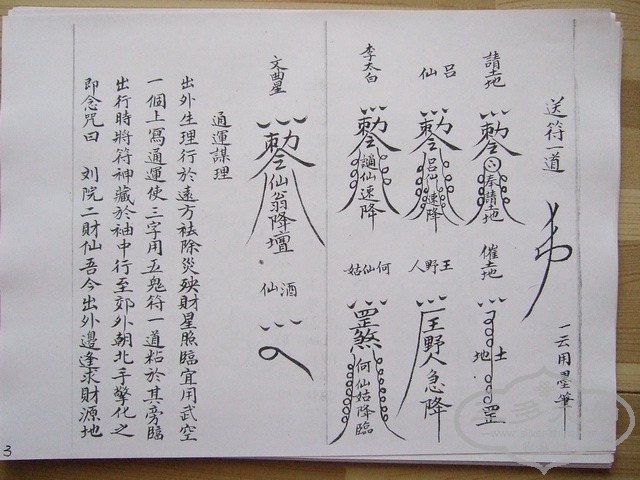 送符一道
一云用墨筆
請土地
勅令
奉請土地
催土地
土地
罡
呂仙
勅令
呂仙速降
王野人
王野人急降
李太白
勅令
謫仙速降
何仙姑
罡煞
何仙姑降臨
文曲星
勅令
仙翁降壇
酒仙
通運謀理
出外生理行於遠方袪除災殃財星照臨宜用武空
一個上寫通運使三字用五鬼符一道粘於其旁臨
出行時將符神藏於袖中行至郊外朝北手擎化之
即念咒曰 刘院二財仙吾今出外邊逢求財源地
3